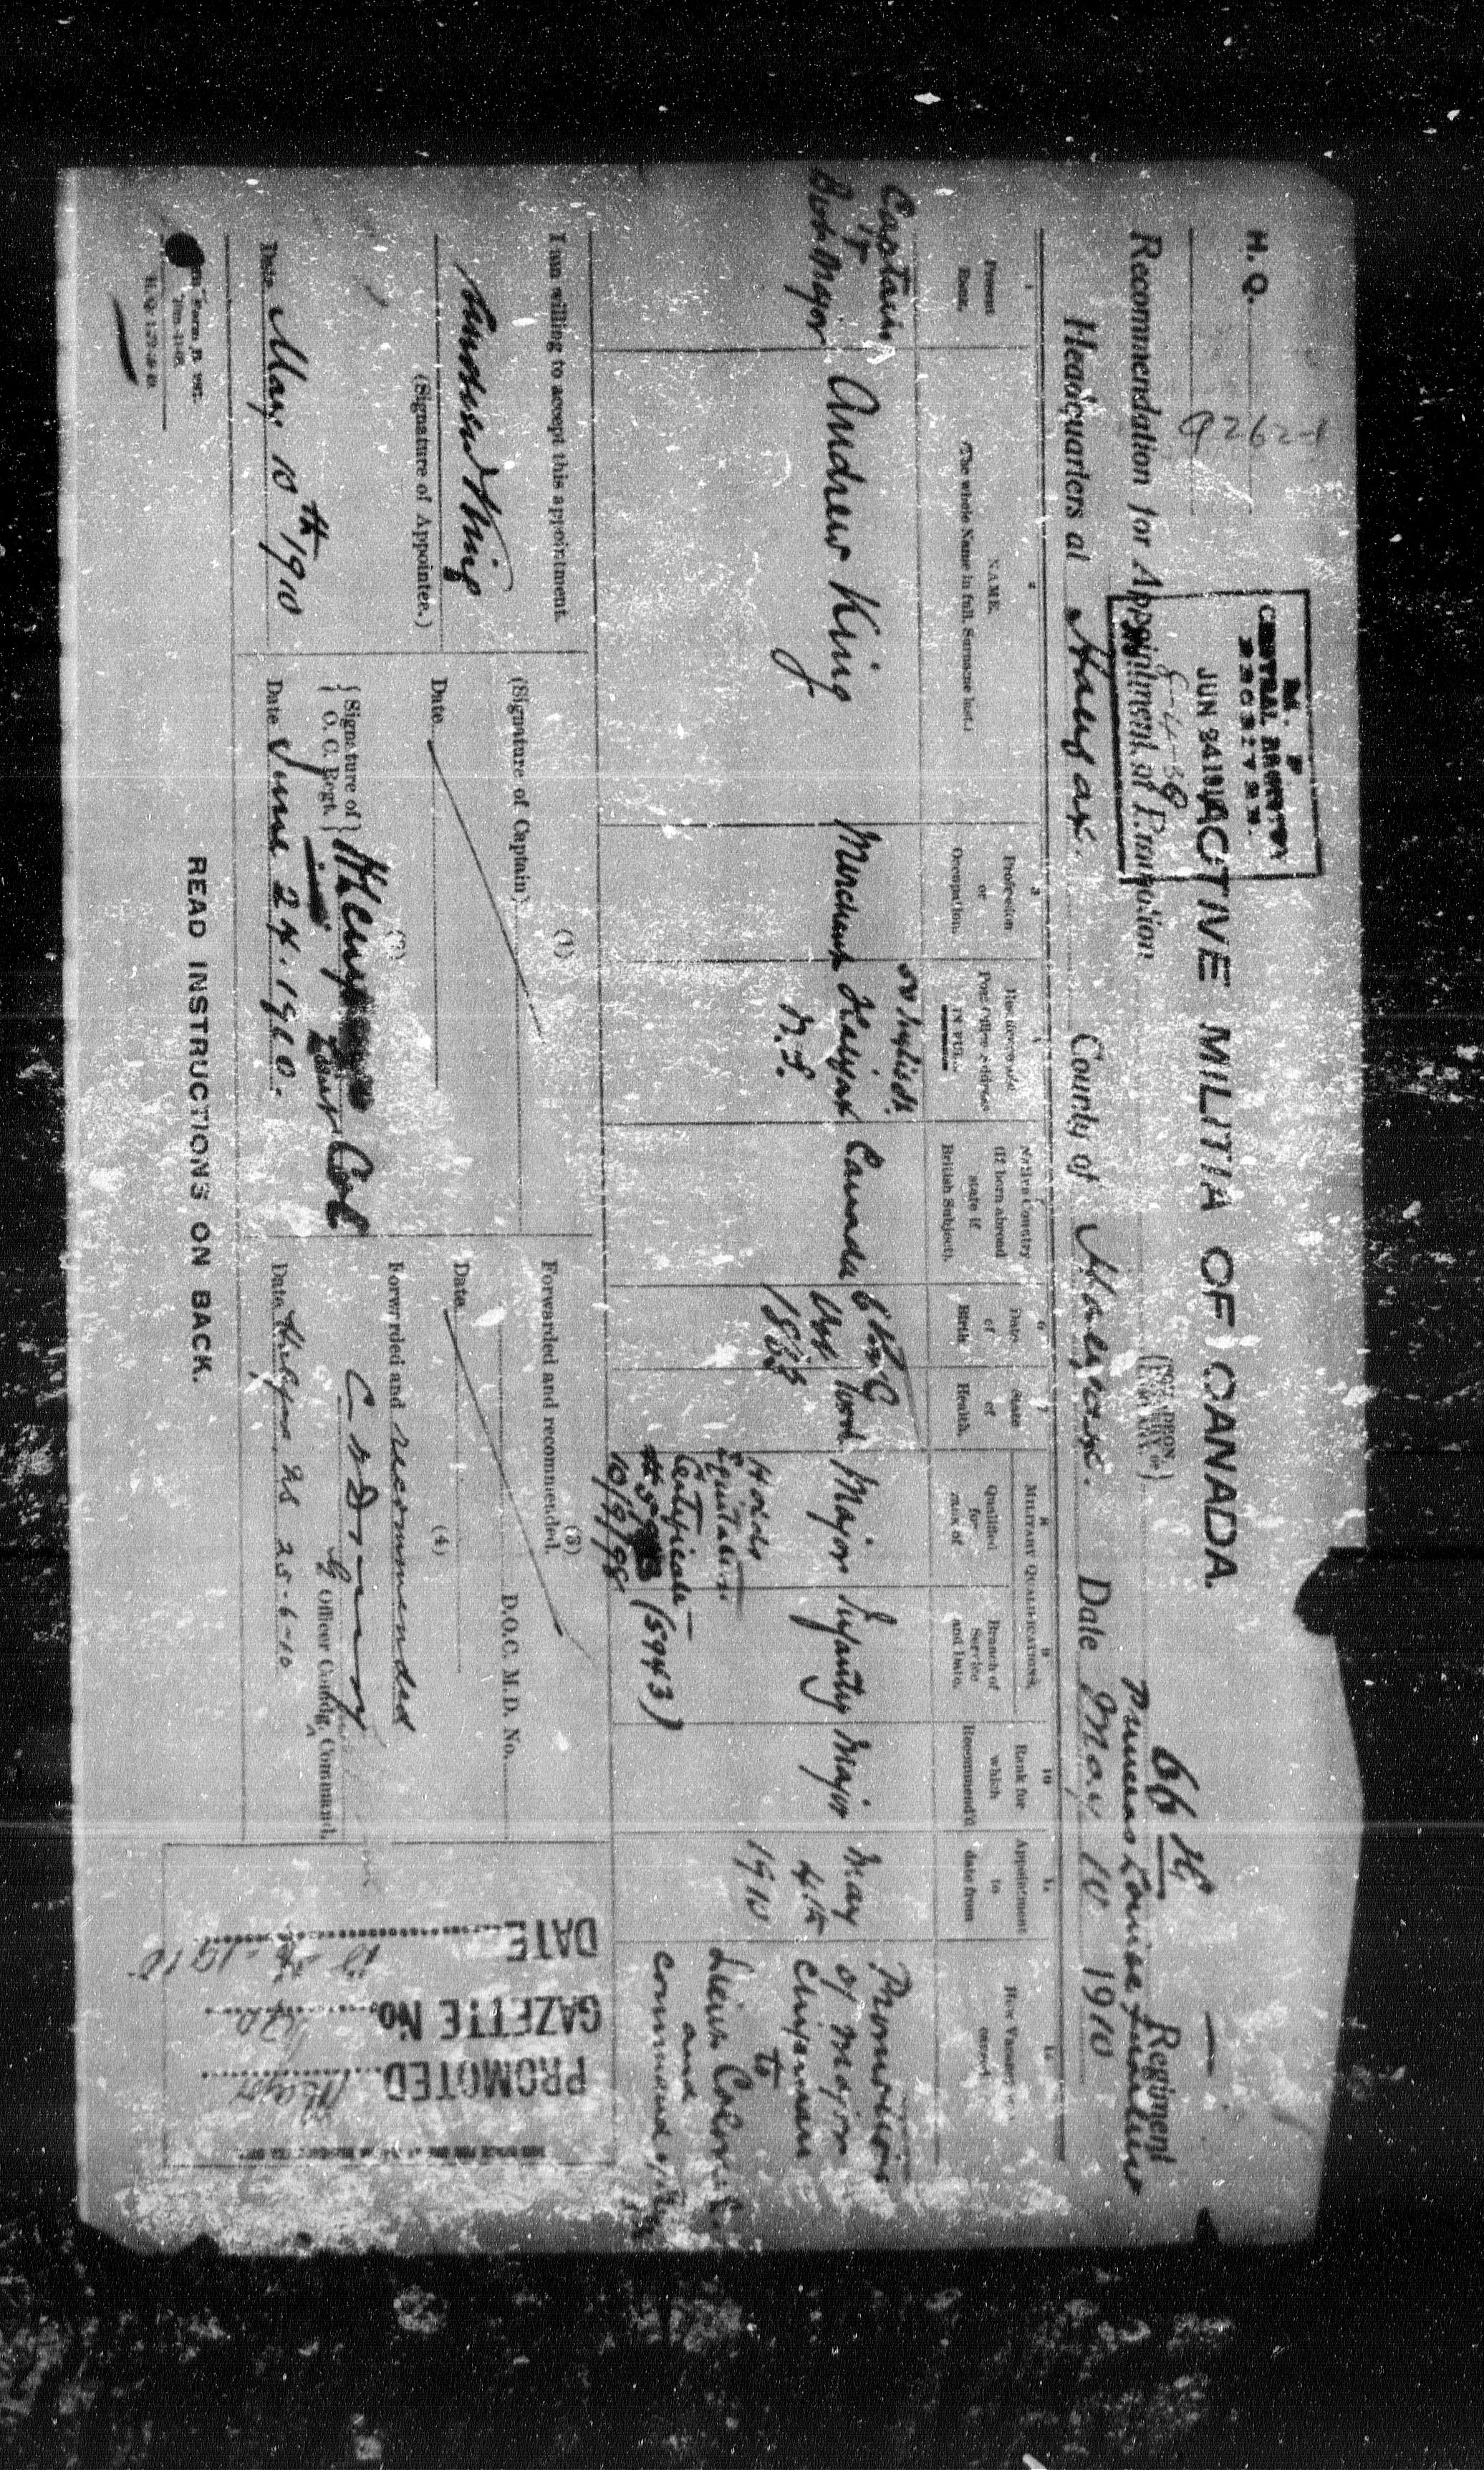 H. Q. 9262-1
M. F.
CENTRAL REGISTRY
RECEIVED.
JUN 24 1910
ACTIVE MILITIA OF CANADA.
66th
Recommendation for Appointment or Promotion
Princess Louise Fusiliers Regiment
Headquarters at Halifax. County of Halifax. Date May 10 1910
1
Present
Rank.
2
NAME.
(The whole Name in full. Surname last.)
3
Profession
or
Occupation.
4
Post Office address
IN FULL
5
Native Country
(if born abroad
state if
British Subject).
6
Date
of
Birth
7
State
of
Health.
MILITARY QUALIFICATIONS.
8
Qualified
for
rank of
9
Branch of
Service
and Date.
10
Rank for
which
Recommend'd
11
Appointment
to
date from
12
How Vacancy
Captain
Bvt Major
Andrew King
Merchant
Halifax
N.S.
Canada
Good
Major
Infantry
Major
May
4th
1910
Promotion
of Major
to
Lieut Colonel
and
command
Holds
Equitation
Certificate
(5943)
10/9/98
I am willing to accept this appointment.
Andrew King
(Signature of Appointee.)
Date May 10th 1910
(1)
(Signature of Captain)
Date
(2)
{Signature of}
{O. C. Regt.}
Lieut Col
Date June 24. 1910.
(3)
Forwarded and recommended.
D.O.C. M.D. No.
Date
(4)
Forwarded and recommended
Officer Comdg. Command.
Date 25-6-10
PROMOTED Major
GAZETTE No.
DATE
H.Q.
READ INSTRUCTIONS ON BACK.